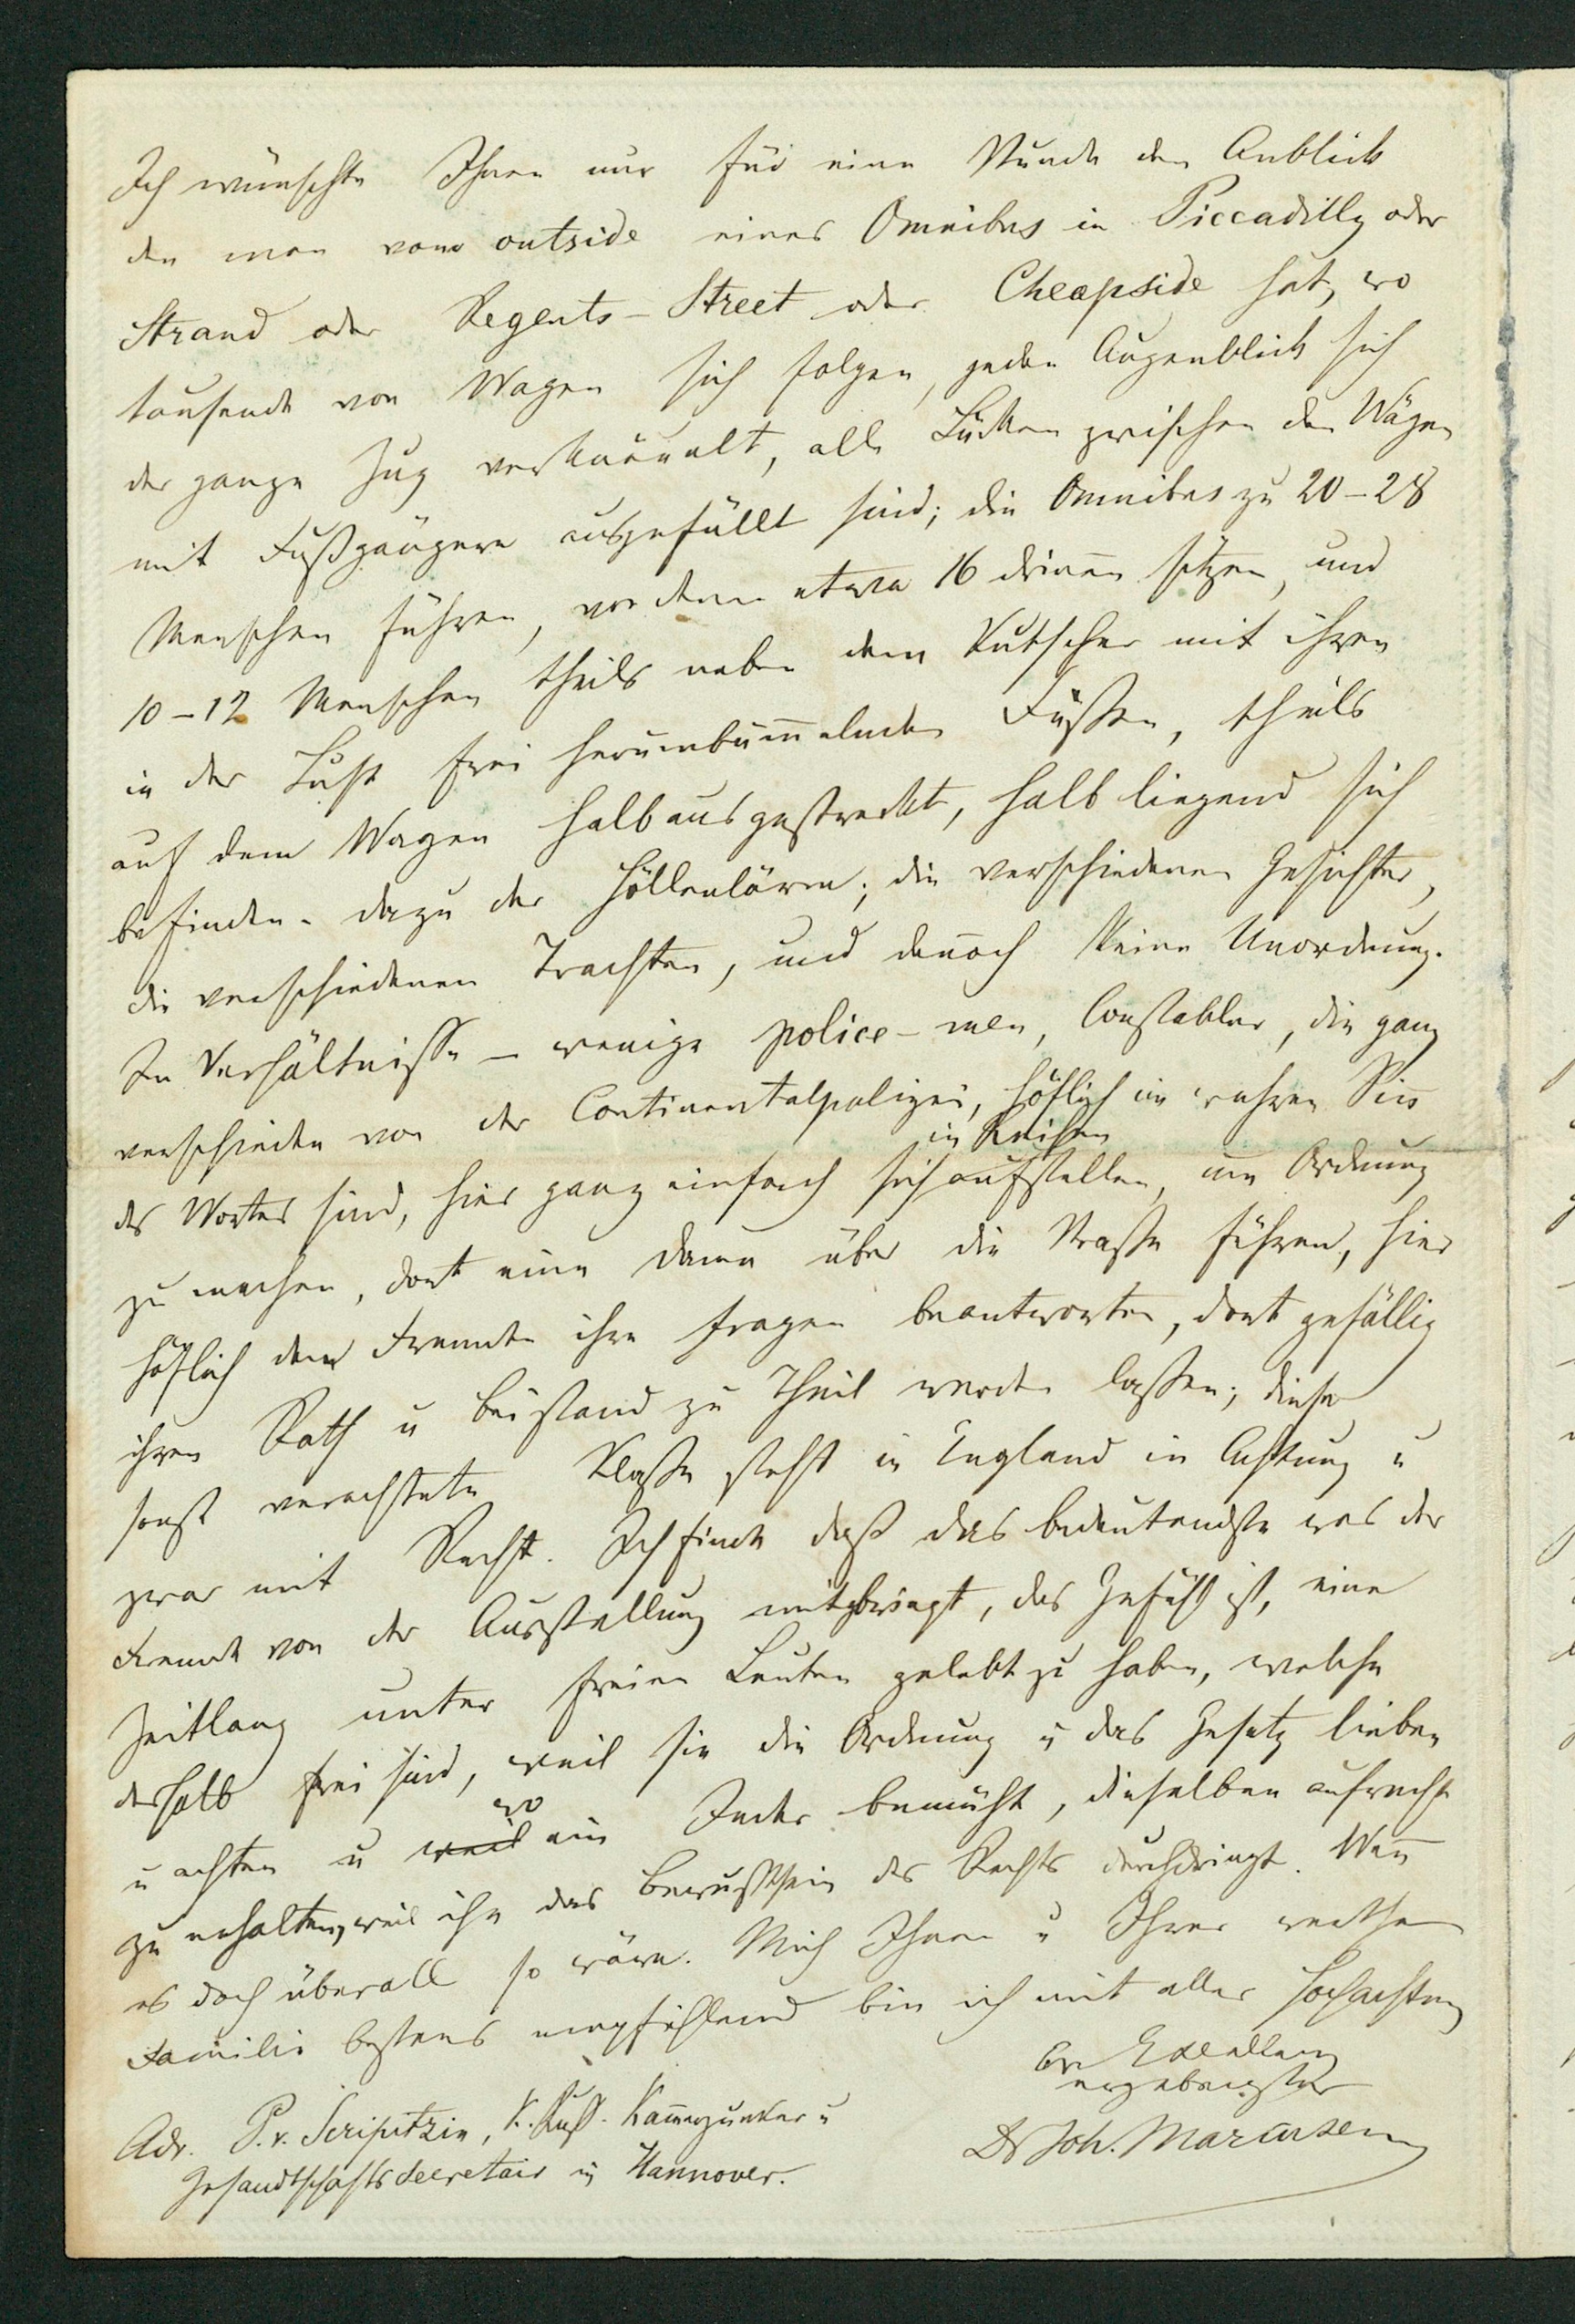 Ich wünschte Ihnen nur für eine Stunde den Anblick
den man vom outside eines Omnibus in Piccadilly oder
Strand oder Regents-Street oder Cheapside hat, wo
tausende von Wagen sich folgen, jeden Augenblick sich
der ganze Zug verknäuelt, alle Lücken zwischen den Wägen
mit Fußgängern ausgefüllt sind; die Omnibus zu 20-28
Menschen führen, von denen etwa 16 drinnen sitzen, und
10-12 Menschen theils neben dem Kutscher mit ihren
in der Luft frei herumbum̄elnden Füßen, theils
auf dem Wagen halb ausgestreckt, halb liegend sich
befinden. dazu der Höllenlärm; die verschiedenen Gesichter,
die verschiedenen Trachten, und den̄och keine Unordnung.
Im Verhältniss – wenige police-men, Constabler, die ganz
verschieden von der Continentalpolizei, höflich im wahren Sin̄
des Wortes sind, hier ganz einfach sich in Reihen aufstellen, um Ordnung
zu machen, dort eine Dame über die Straße führen, hier
höflich dem Fremden ihre Fragen beantworten, dort gefällig
ihren Rath u Beistand zu Theil werden lassen; diese
sonst verachtete Klasse steht in England in Achtung u
zwar mit Recht. Ich finde daß das bedeutendste was der
Fremde von der Ausstellung mitbringt, das Gefühl ist, eine
Zeitlang unter freien Leuten gelebt zu haben, welche
deshalb frei sind, weil sie die Ordnung u das Gesetz lieben
u achten u weil wo ein Jeder bemüht, dieselben aufrecht
zu erhalten, weil ihn das Bewußtsein des Rechts durchdringt. Wen̄
es doch überall so wäre. Mich Ihnen u Ihrer werthen
Familie bestens empfehlend bin ich mit aller Hochachtung
Ew Excellenz
ergebenster
Dr Joh. Marcusen
Adr. P. v. Scripitzin, K. Russ. Kam̄erjunker u
Gesandtschaftssecretair in Hannover.